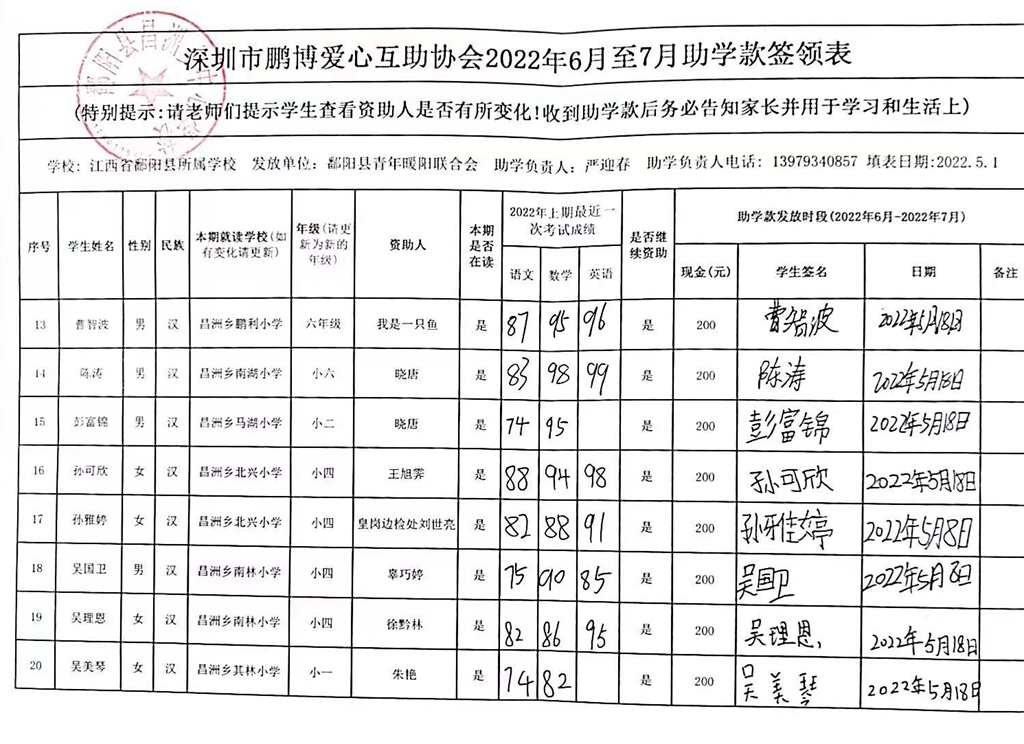 深圳市鹏博爱心互助协会2022年6月至7月助学款签领表
(特别提示:请老师们提示学生查看资助人是否有所变化!收到助学款后务必告知家长并用于学习和生活上)
学校: 江西省鄱阳县所属学校 发放单位: 鄱阳县青年暖阳联合会 助学负责人: 严迎春 助学负责人电话: 13979340857 填表日期:2022.5.1
序号 学生姓名 性别 民族 本期就读学校(如有变化请更新) 年级(请更新为新的年级) 资助人 本期是否在读 2022年上期最近一次考试成绩 是否继续资助 助学款发放时段(2022年6月-2022年7月)
语文 数学 英语 现金(元) 学生签名 日期 备注
13 曹智波 男 汉 昌洲乡鹏利小学 六年级 我是一只鱼 是 87 95 96 是 200 曹智波 2022年5月18日
14 陈涛 男 汉 昌洲乡南湖小学 小六 晓唐 是 83 98 99 是 200 陈涛 2022年5月18日
15 彭富锦 男 汉 昌洲乡马湖小学 小二 晓唐 是 74 95 是 200 彭富锦 2022年5月18日
16 孙可欣 女 汉 昌洲乡北兴小学 小四 王旭霁 是 88 94 98 是 200 孙可欣 2022年5月18日
17 孙雅婷 女 汉 昌洲乡北兴小学 小四 皇岗边检处刘世亮 是 82 88 91 是 200 孙雅婷 2022年5月18日
18 吴国卫 男 汉 昌洲乡南林小学 小四 辜巧婷 是 75 90 85 是 200 吴国卫 2022年5月8日
19 吴理恩 女 汉 昌洲乡南林小学 小四 徐黔林 是 82 86 95 是 200 吴理恩 2022年5月18日
20 吴美琴 女 汉 昌洲乡其林小学 小一 朱艳 是 74 82 是 200 吴美琴 2022年5月18日